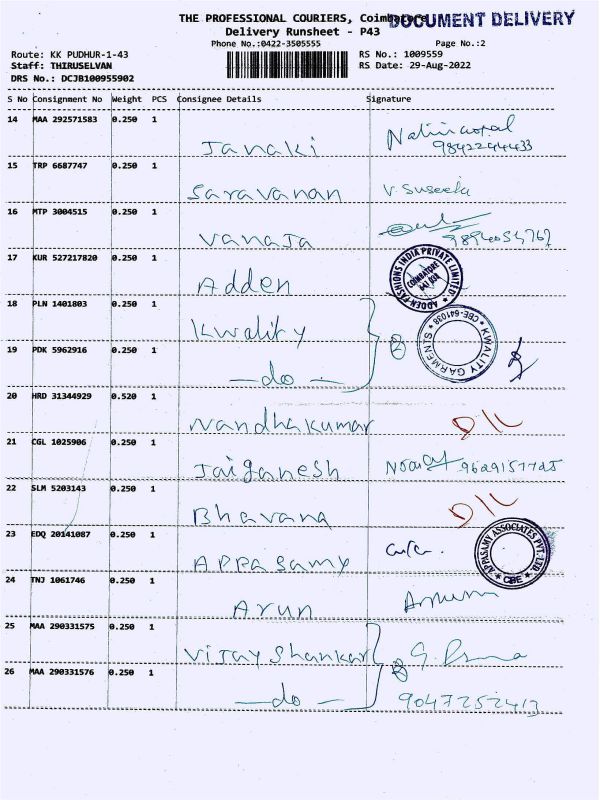 THE PROFESSIONAL COURIERS, Coimbatore
DOCUMENT DELIVERY
Delivery Runsheet - P43
Phone No.:0422-3505555
Page No.:2
Route: KK PUDHUR-1-43
RS No.: 1009559
Staff: THIRUSELVAN
RS Date: 29-Aug-2022
DRS No.: DCJB100955902
S No Consignment No Weight PCS Consignee Details Signature
14 MAA 292571583 0.250 1
Janaki 9842244433
15 TRP 6687747 0.250 1
Saravanan V. Suseela
16 MTP 3004515 0.250 1
Vanaja
17 KUR 527217820 0.250 1
Adden
ADDEN FASHIONS INDIA PRIVATE LIMITED
COIMBATORE
18 PLN 1401803 0.250 1
Kwality
KWALITY GARMENTS * CBE-641038 *
19 PDK 5962916 0.250 1
— do — 2
20 HRD 31344929 0.520 1
Nandhakumar D/L
21 CGL 1025906 0.250 1
Jaiganesh
22 SLM 5203143 0.250 1
Bhavana D/L
23 EDQ 20141087 0.250 1
Appasamy
APPASAMY ASSOCIATES PVT. LTD.
* CBE *
24 TNJ 1061746 0.250 1
Arun
25 MAA 290331575 0.250 1
Vijay Shankar
26 MAA 290331576 0.250 1
— do — 2 9047252413